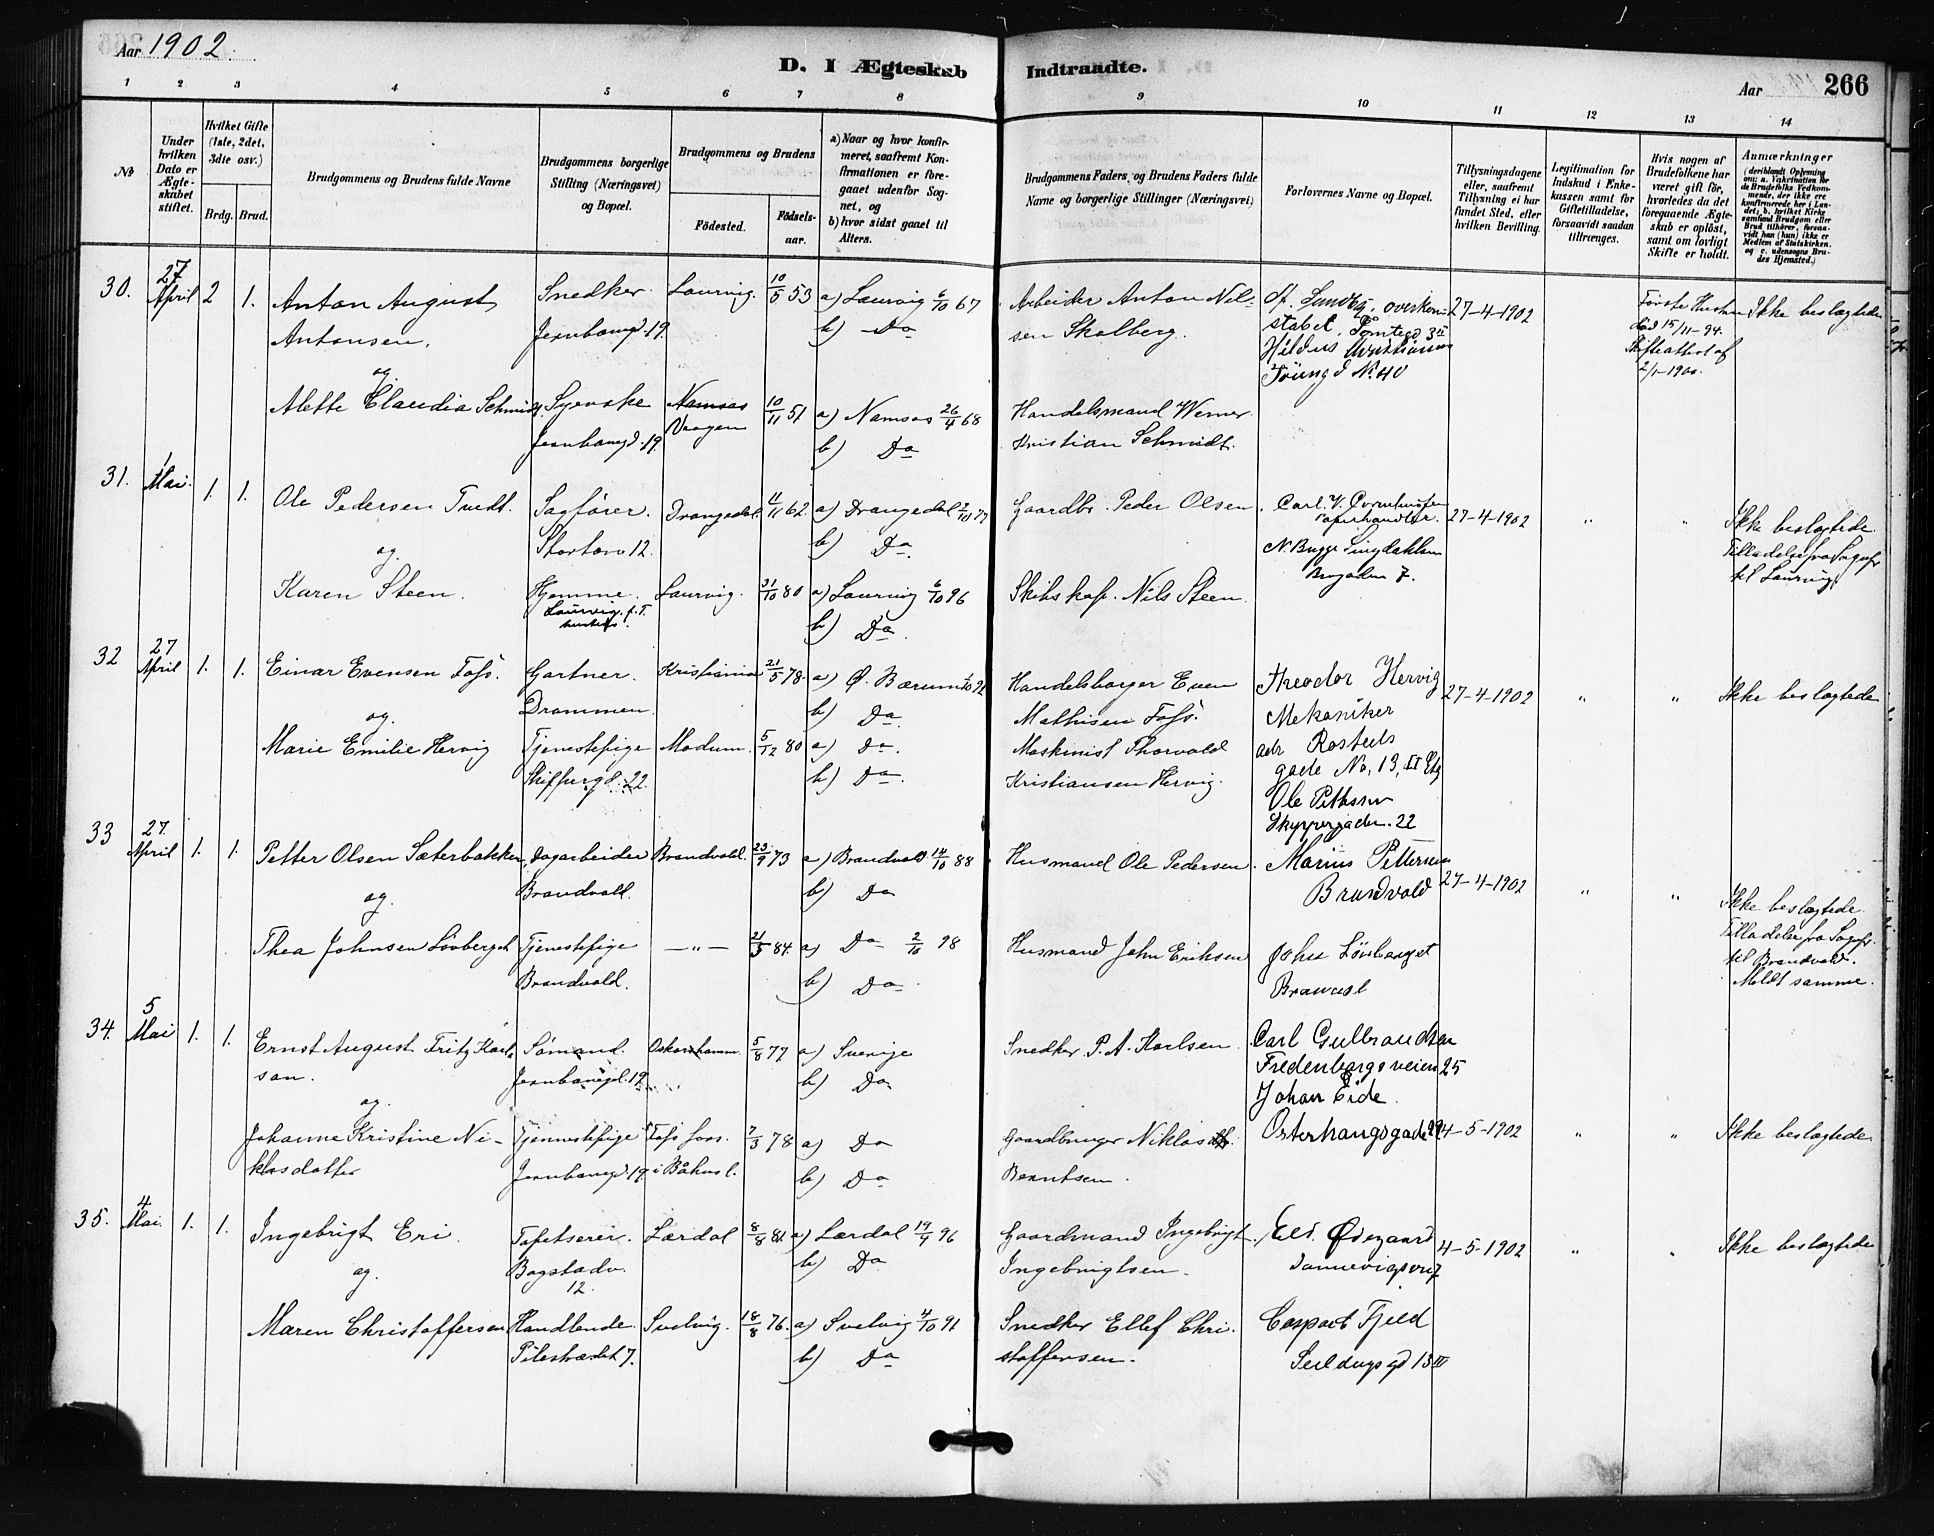 Aar 1902.
D. I Ægteskab Indtraadte.
Aar 266
1 2 3 4 5 6 7 8 9 10 11 12 13 14
No
Under hvilken Dato er Ægteskabet stiftet.
Hvilket Gifte (1ste, 2det, 3die osv.)
Brdg. Brud.
Brudgommens og Brudens fulde Navne
Brudgommens borgerlige Stilling (Næringsvei) og Bopæl.
Brudgommens og Brudens
Fødested.
Fødselsaar.
a) Naar og hvor konfirmeret, saafremt Konfirmationen er foregaaet udenfor Sognet, og
b) hvor sidst gaaet til Alters.
Brudgommens Faders og Brudens Faders fulde Navne og borgerlige Stillinger (Næringsvei)
Forlovernes Navne og Bopæl.
Tillysningsdagene eller, saafremt Tillysning ei har fundet Sted, efter hvilken Bevilling.
Legitimation for Indskud i Enkekassen samt for Giftetilladelse, forsaavidt saadan tiltrænges.
Hvis nogen af Brudefolkene har været gift før, hvorledes da det foregaaende Ægteskab er opløst, samt om lovligt Skifte er holdt.
Anmærkninger
30. 27 April 2 1. Anton August Antonsen.
Snedker. Jernbanegd. 19.
Laurvig. 10/5 53
a) Laurvig 6/10 67
b) Do
Arbeider Anton Nilsen Skolberg.
27-4-1902
Første Hustru død 15/11-94. Skifteattest af 2/1-1900.
Ikke beslægtede
og
Alette Claudia Schmidt
Syerske Jernbanegd. 19.
Namsos Vaagen
10/11 51
a) Namsos 26/4 68
b) Do
Handelsmand Werner Kristian Schmidt.
31. 1 Mai. 1. 1. Ole Pedersen Tvedt.
Sagfører. Stortorv 12.
Drangedal. 11/11 62.
a) Drangedal 2/10 77
b) Do
Gaardbr. Peder Olsen
27-4-1902 " "
Ikke beslægtede. Tilladelse fra Sognepr til Laurvig.
og
Karen Steen.
Hjemme. Laurvig. f. T.
Laurvig. 31/10 80
a) Laurvig 6/10 96
b) Do.
Skibskap. Nils Steen.
32 27 April 1. 1. Einar Evensen Foss.
Gartner. Drammen.
Kristiania 21/5 78.
a) Ø. Bærum
b) Do
Handelsborger Even Mathisen Foss.
Theodor Hervig Mekaniker adr Rosteds gade No, 13, II Etg
27-4-1902 " "
Ikke beslægtede
og
Marie Emilie Hervig
Tjenestepige Skippergd. 22.
Modum. 5/12 80
a) Do.
b) Do.
Maskinist Thorvald Kristiansen Hervig.
Ole Pettersen Skyppergaden. 22
33 27. April 1. 1. Petter Olsen Sæterbakken
Dagarbeider Brandvold.
Brandvold. 23/9 73
a) Brandvold 14/10 88
b) Do
Husmand Ole Pedersen.
Marius Pettersen Brandvold
27-4-1902 " "
Ikke beslægtede. Tilladelse fra Sognepr. til Brandvold. Meldt samme.
og
Thea Johnsen Løvberget
Tjenestepige Brandvold.
—"— 21/5 84.
a) Do 2/10 98
b) Do
Husmand John Eriksen
John Løvberget
34. 5 Mai 1. 1. Ernst August Fritz Karlsson.
Sømand. Jernbanegd. 19
Oskarshamn. 5/8 77
a) Sverige
b) Do
Snedker P. A. Karlsen.
Carl Gulbrandsen Fredenborgsveien 25
Johan Eide. Osterhausgade 29
4-5-1902 " "
Ikke beslægtede.
og
Johanne Kristine Niklasdatter
Tjenestepige Jernbanegd. 19
Foss i Båhusl. 7/3 78
a) Do
b) Do
Gaardbruger Niklas Berntsen.
35. 4 Mai. 1. 1. Ingebrigt Eri.
Tapetserer. Bogstadv. 12.
Lærdal 8/8 81
a) Lærdal 14/9 96
b) Do
Gaardmand Ingebrigt Ingebrigtsen.
Ødegaard Dannevigsvei 7
4-5-1902 " "
Ikke beslægtede
og
Maren Christoffersen
Handlende. Pilestrædet 7.
Svelvig. 18/8 76.
a) Svelvig 4/10 91
b) Do
Snedker Ellef Christoffersen.
Caspart Fjeld Seildugsgd 13 III